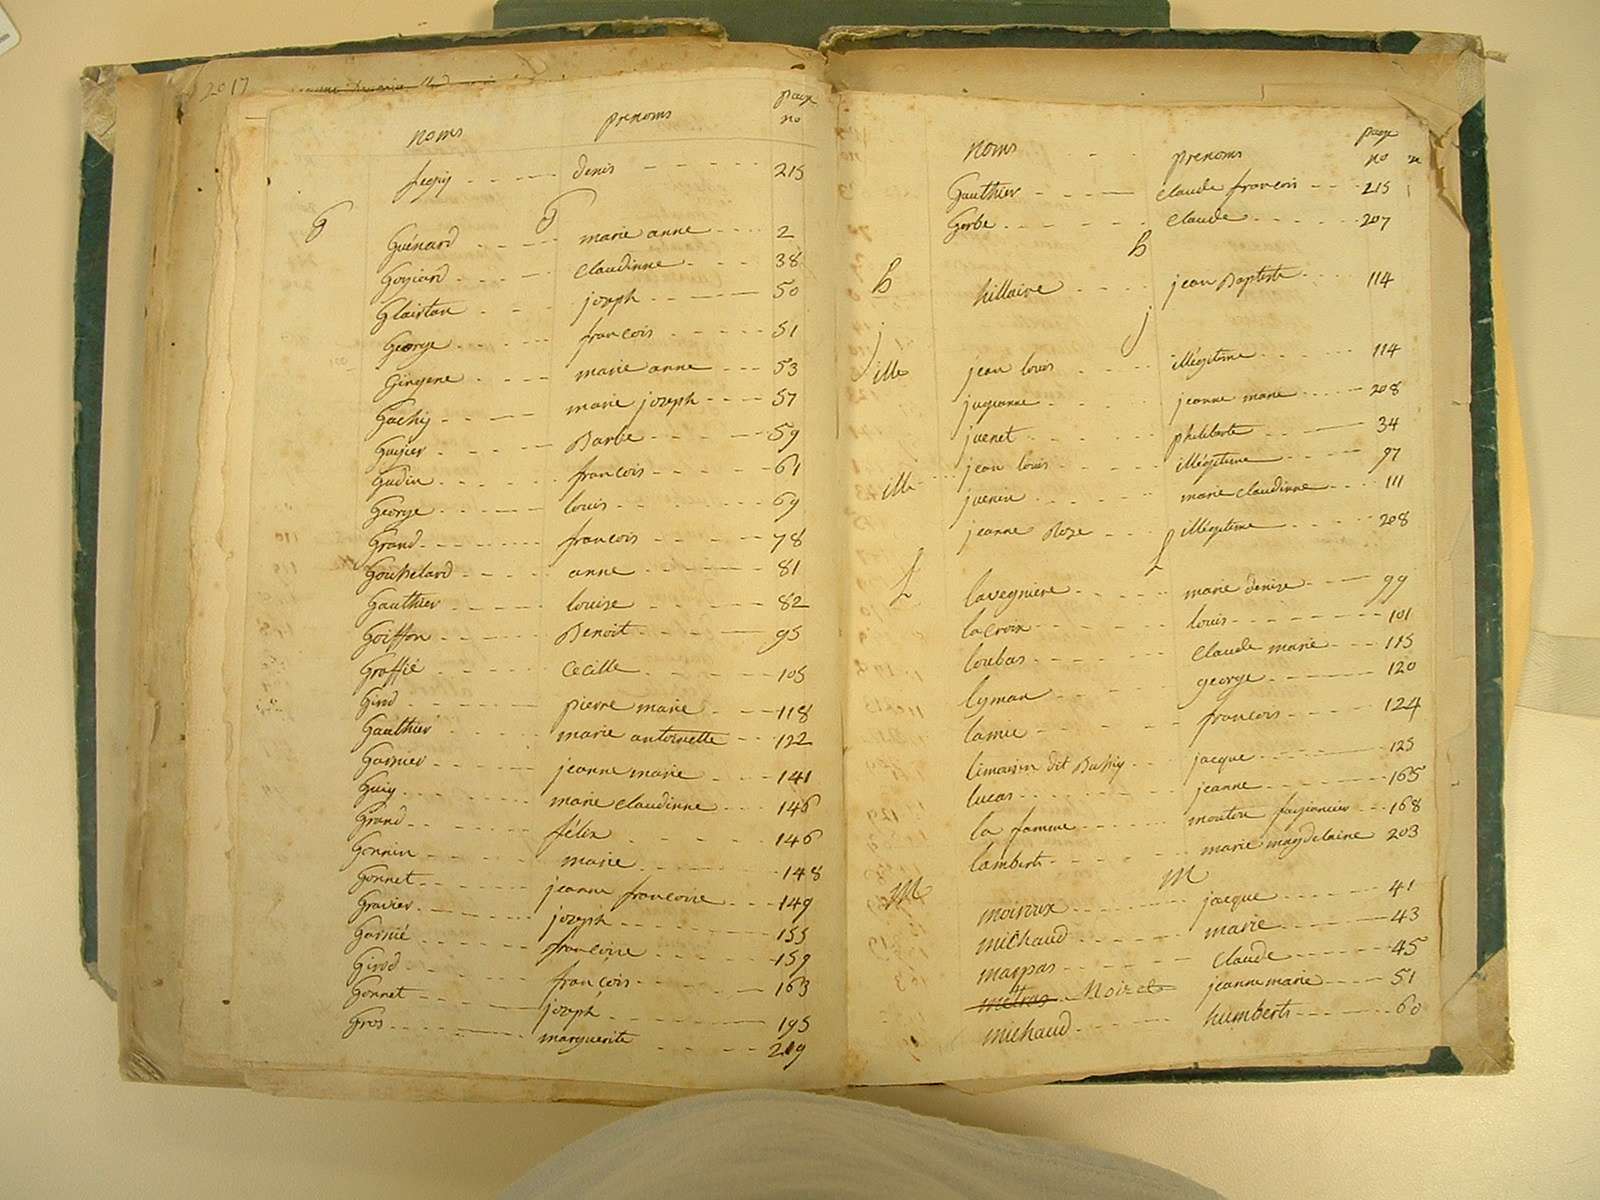 2017
noms prenoms page no
denis 215
G G
Guénard marie anne 2
Goyiard Claudinne 38
Glairtan joseph 50
George francois 51
Gingene marie anne 53
Gachy marie joseph 57
Guyier Barbe 59
Gudin francois 61
George louis 69
Grand francois 78
Gouhelard anne 81
Gauthier louise 82
Goiffon Benoit 95
Graffié Cecille 105
Girod pierre marie 118
Gauthier marie antoinette 122
Garnier jeanne marie 141
Guiy marie claudinne 146
Grand félix 146
Gennin marie 148
Gonnet jeanne francoise 149
Gravier joseph 155
Garnié francoise 159
Girod francois 163
Gonnet joseph 195
Gros marguerite 219
noms prenoms page no
Gauthier claude francois 215
Gorbe Claude 207
h h
hillaire jean Baptiste 114
j j
ille jean louis illégitime 114
juyranne jeanne marie 208
juenet philiberte 34
ille jean louis illégitime 97
juenin marie claudinne 111
jeanne Roze illégitime 208
L L
lavegniere marie denise 99
lacroix louis 101
loubas Claude marie 115
lyman george 120
lamie francois 124
limosin dit Bussy jacque 125
lucas jeanne 165
la famme mouton fayiancier 168
lambert marie magdelaine 203
M M
moiroux jacque 41
michaud marie 43
marpas Claude 45
métras Noiret jeanne marie 51
michaud humbert 60